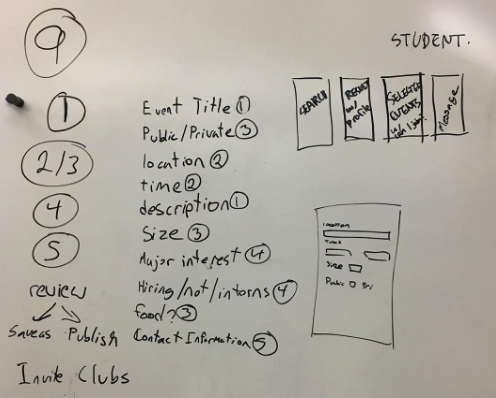 9
STUDENT.
1
2/3
4
5
review
Saveas Publish
Invite Clubs
Event Title 1
Public/Private 3
location 2
time 2
description 1
Size 3
Major interest 4
Hiring/not/interns 4
food? 3
Contact Information 5
SEARCH
RESULT
w/
Profile
SELECTED
EVENTS
Message
Location
Time
Size
Public Pri